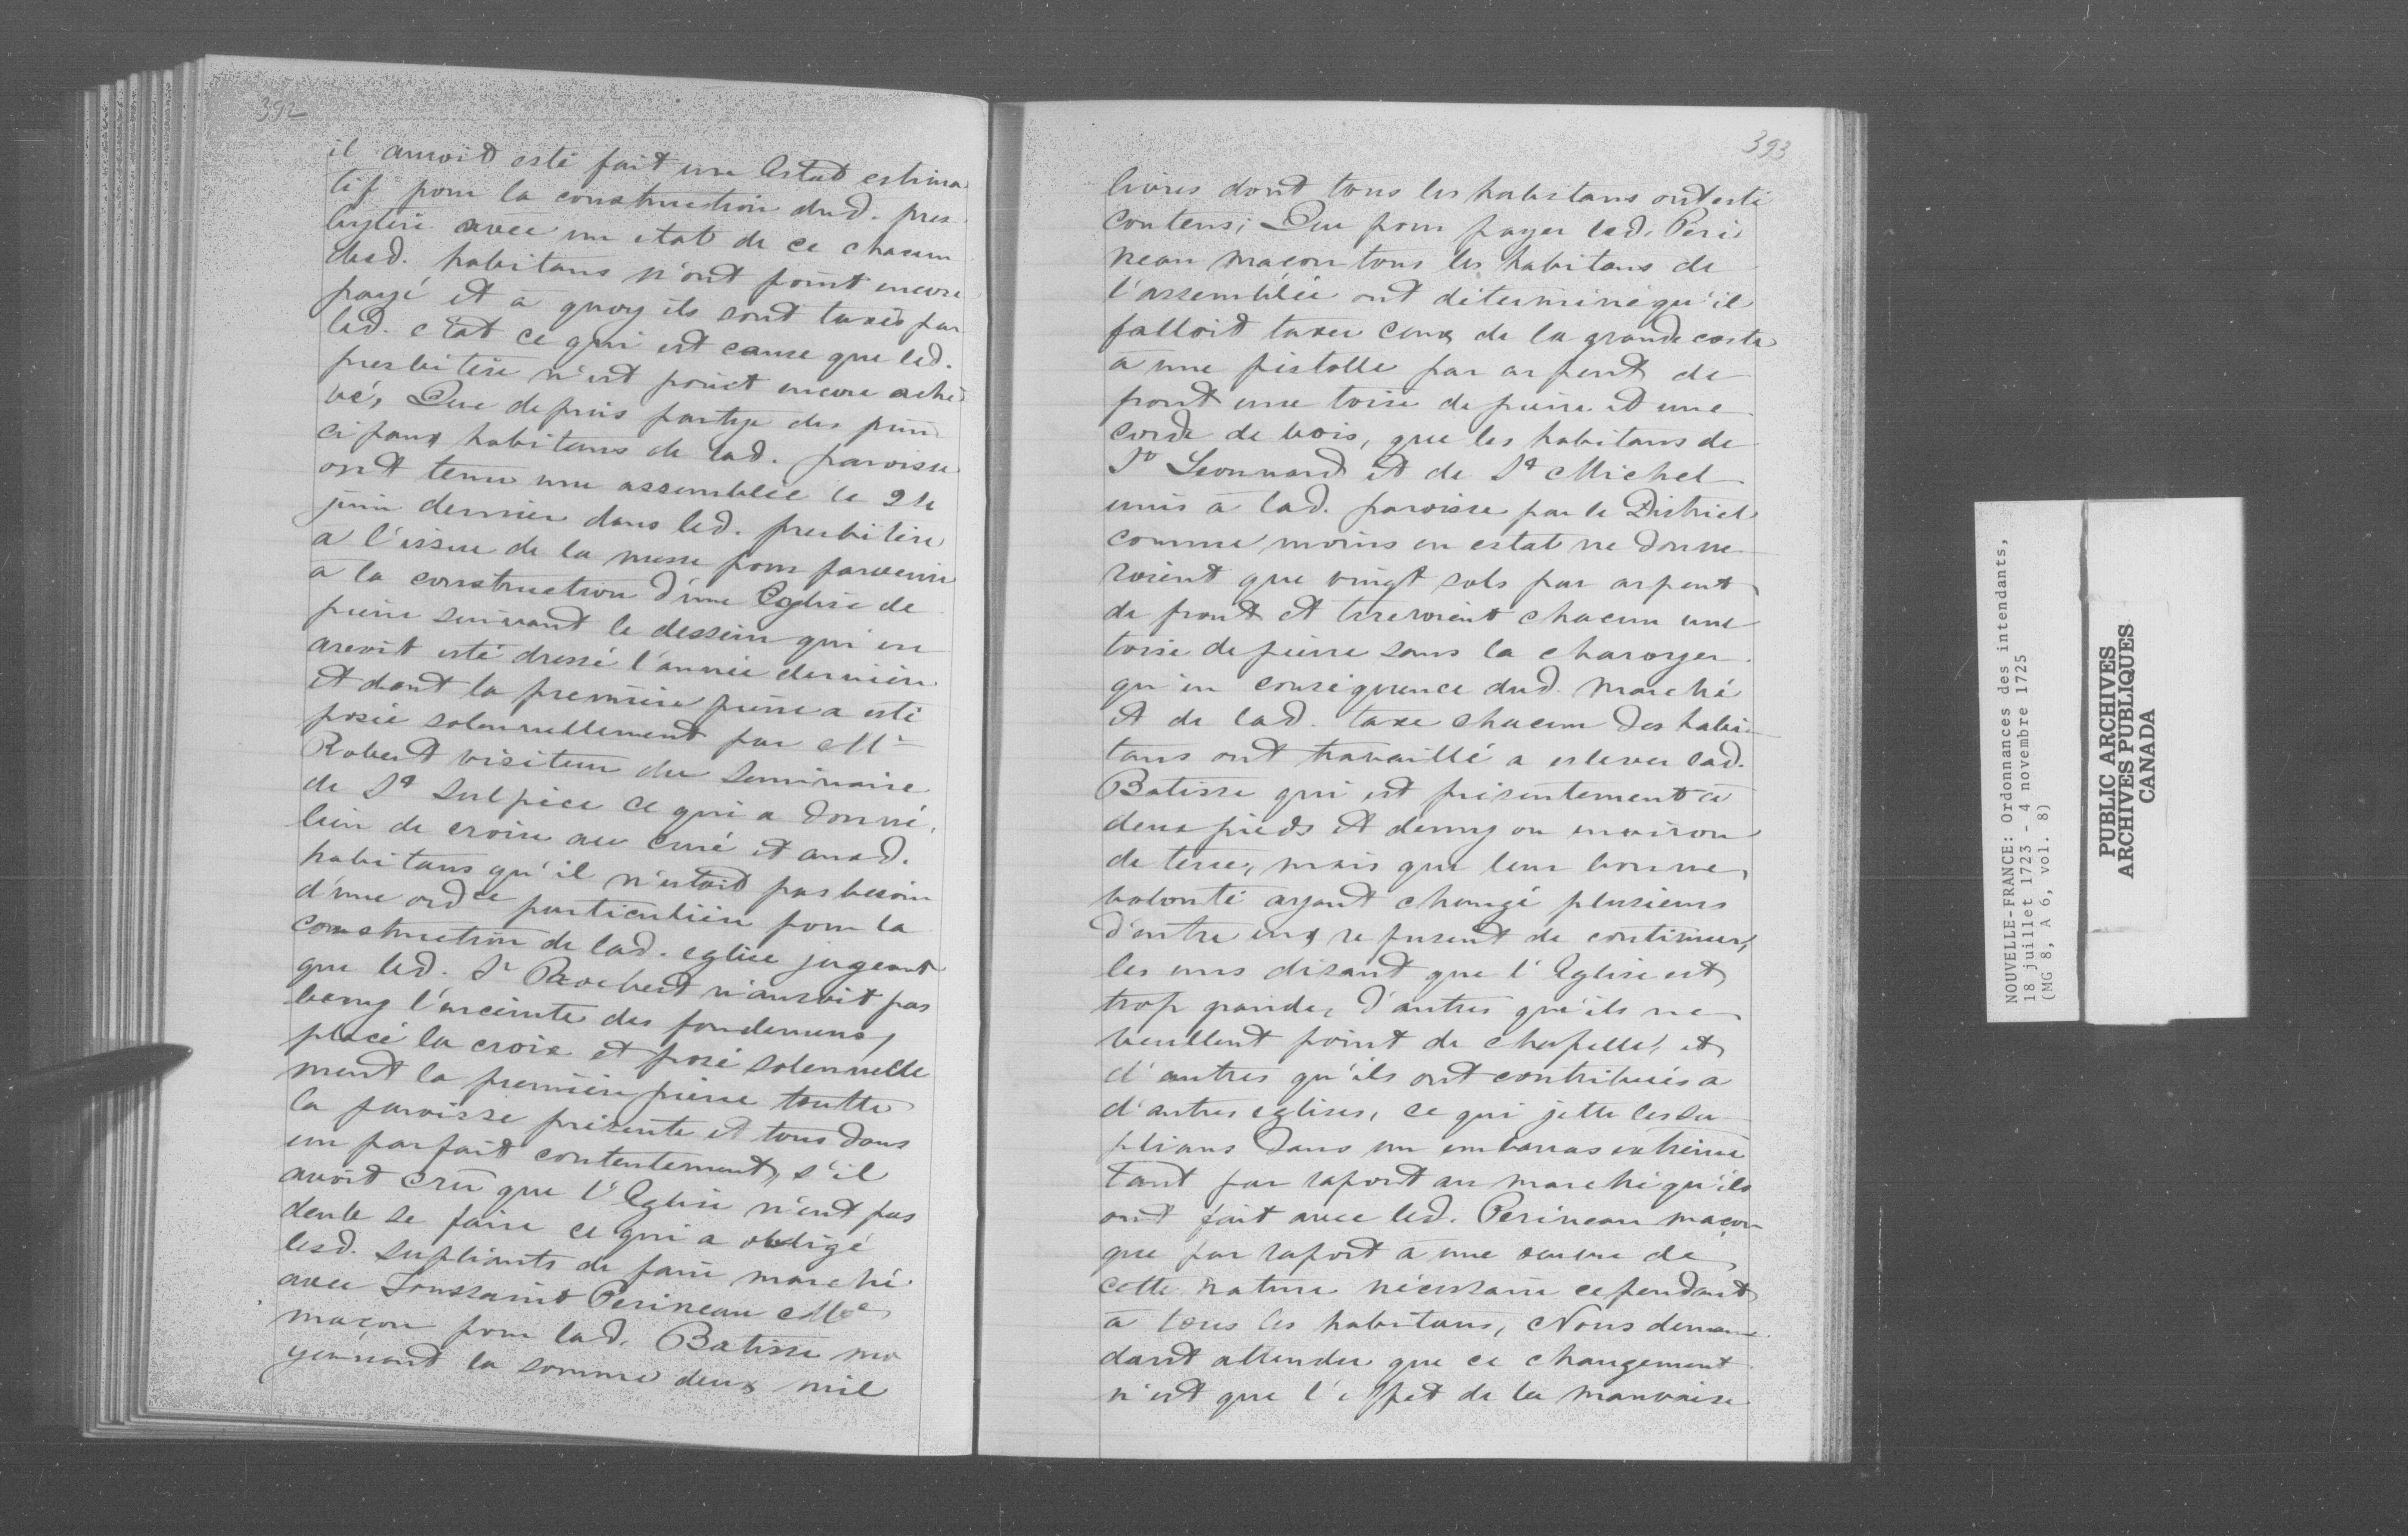 392
il auroit esté fait un Estat estima
tif pour la construction dud. pres
bytere avec un etat de ce chacun
desd. habitans n'ont point encore
payé et a quoy ils sont taxés par
led. etat ce qui est cause que led.
presbitere n'est point encore ache
vé, Que depuis partye des prin
cipaux habitans de lad. paroisse
ont tenu une assemblée le 24
juin dernier dans led. presbitere
a l'issue de la messe pour parvenir
a la construction d'une Eglise de
pierre suivant le dessein qui en
avoit esté dressé l'année derniere
et dont la premiere pierre a esté
posée solennellement par Mr
Robert visiteur du Seminaire
de St Sulpice ce qui a donné
lieu de croire au curé et auxd.
habitans qu'il n'estoit pas besoin
d'une ordce particuliere pour la
construction de lad. eglise jugeant
que led. Sr Robert n'auroit pas
beny l'enceinte des fondemens,
placé la croix et posé solennelle
ment la premiere pierre toutte
la paroisse présente et tous dans
un parfait contentement, s'il
avoit crû que l'Eglise n'eut pas
deub se faire ce qui a obligé
lesd. supliants de faire marché
avec Toussaint Perineau Me
maçon pour lad. Batisse mo
yennant la somme deux mil
393
livres dont tous les habitans ont esté
contens; Que pour payer led. Peri
neau maçon tous les habitans de
l'assemblée ont déterminé qu'il
falloit taxer ceux de la grande coste
a une pistolle par arpent de
front une toise de pierre et une
corde de bois, que les habitans de
St Leonnard et de St Michel
unis à lad. paroisse par le District
comme moins en estat ne donne
roient que vingt sols par arpent
de front et tireroient chacun une
toise de pierre sans la charoyer
qu'en conséquence dud. Marché
et de lad. taxe chacun des habi
tans ont travaillé a eslever lad.
Batisse qui est présentement à
deux pieds et demy ou environ
de terre, mais que leur bonne
volonté ayant changé plusieurs
d'entre eux refusent de continuer,
les uns disant que l'Eglise est
trop grande, d'autres qu'ils ne
veullent point de chapelle, et
d'autres qu'ils ont contribués a
d'autres eglises, ce qui jette les su
plians dans un embarras extreme
tant par raport au marché qu'ils
ont fait avec led. Perineau maçon
que par raport à une œuvre de
cette nature nécessaire cependant
à tous les habitans, Nous deman
dant attendu que ce changement
n'est que l'effet de la mauvaise
NOUVELLE-FRANCE: Ordonnances des intendants,
18 juillet 1723 - 4 novembre 1725
(MG 8, A 6, vol. 8)
PUBLIC ARCHIVES
ARCHIVES PUBLIQUES
CANADA